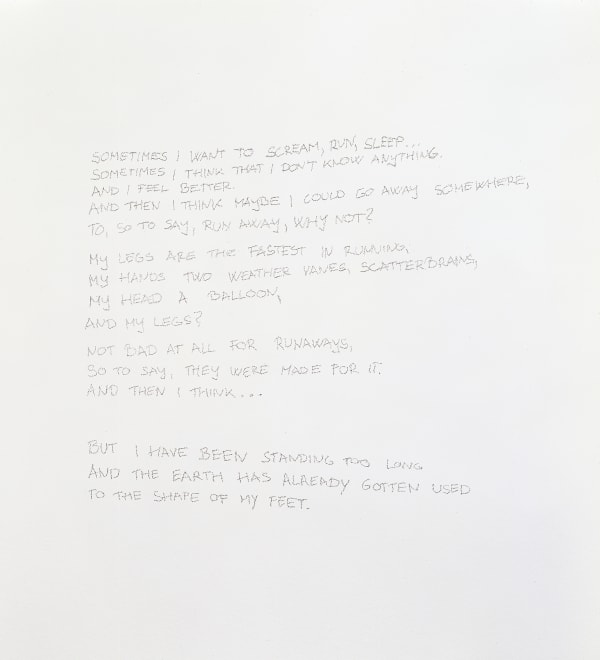 SOMETIMES I WANT TO SCREAM, RUN, SLEEP...
SOMETIMES I THINK THAT I DON'T KNOW ANYTHING.
AND I FEEL BETTER.
AND THEN I THINK MAYBE I COULD GO AWAY SOMEWHERE,
TO, SO TO SAY, RUN AWAY, WHY NOT?
MY LEGS ARE THE FASTEST IN RUNNING,
MY HANDS TWO WEATHER VANES, SCATTERBRAINS,
MY HEAD A BALLOON,
AND MY LEGS?
NOT BAD AT ALL FOR RUNAWAYS,
SO TO SAY, THEY WERE MADE FOR IT.
AND THEN I THINK...
BUT I HAVE BEEN STANDING TOO LONG
AND THE EARTH HAS ALREADY GOTTEN USED
TO THE SHAPE OF MY FEET.